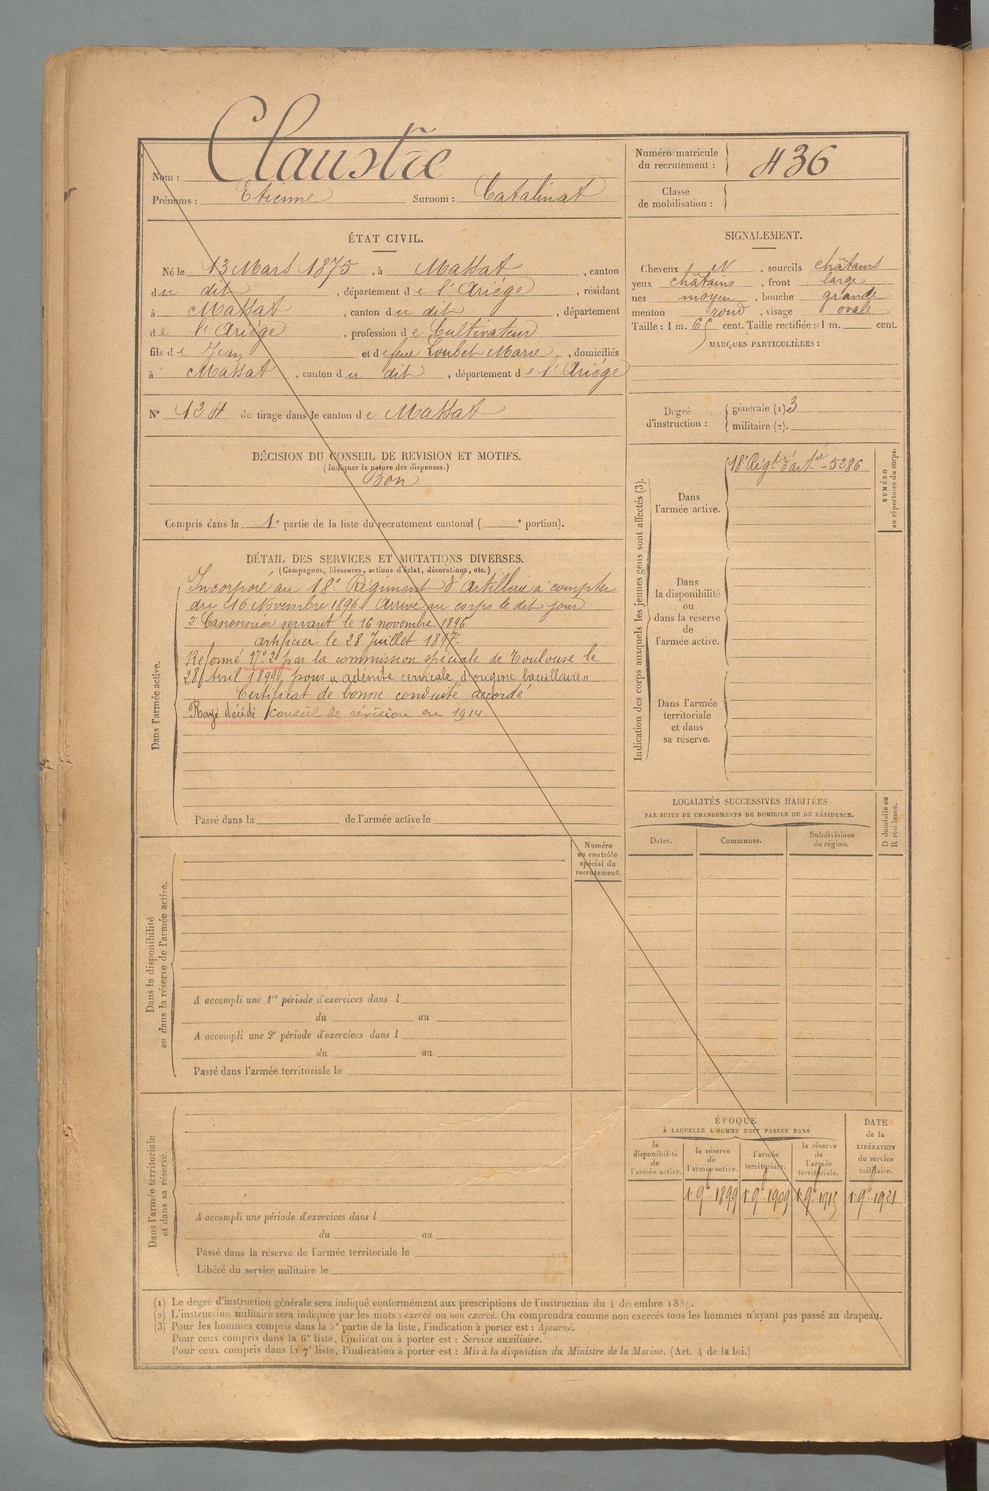 Nom : Claustre
Prénoms : Etienne Surnom : Catalinat
Numéro matricule du recrutement : 436
Classe de mobilisation :
ÉTAT CIVIL.
Né le 13 Mars 1875, à Massat, canton
du dit, département de l'Ariège, résidant
à Massat, canton du dit, département
de l'Ariège, profession de Cultivateur
fils de Jean et de feue Loubet Marie, domiciliés
à Massat, canton du dit, département de l'Ariège
N° 134 de tirage dans le canton de Massat
SIGNALEMENT.
Cheveux N, sourcils châtains
yeux châtains, front large
nez moyen, bouche grande
menton rond, visage ovale
Taille : 1 m. 65 cent. Taille rectifiée : 1 m. cent.
MARQUES PARTICULIÈRES :
Degré d'instruction : générale (1) 3
militaire (2).
DÉCISION DU CONSEIL DE REVISION ET MOTIFS.
(Indiquer la nature des dispenses.)
Bon
Compris dans la 1e partie de la liste du recrutement cantonal ( e portion).
DÉTAIL DES SERVICES ET MUTATIONS DIVERSES.
(Campagnes, blessures, actions d'éclat, décorations, etc.)
Dans l'armée active.
Incorporé au 18e Régiment d'Artillerie à compter
du 16 Novembre 1896. Arrivé au corps le dit jour
2e Canonnier servant le 16 novembre 1896.
artificier le 28 Juillet 1897.
Réformé n° 2 par la commission spéciale de Toulouse le
28 Avril 1898, pour « adénite cervicale d'origine bacillaire »
Certificat de bonne conduite accordé
Rayé décédé conseil de révision en 1914
Passé dans la de l'armée active le
Indication des corps auxquels les jeunes gens sont affectés (3).
Dans l'armée active.
18e Régt d'artie - 5286
NUMÉRO au répertoire du corps.
Dans la disponibilité ou dans la réserve de l'armée active.
Dans l'armée territoriale et dans sa réserve.
LOCALITÉS SUCCESSIVES HABITÉES
PAR SUITE DE CHANGEMENTS DE DOMICILE OU DE RÉSIDENCE.
Dates. Communes. Subdivisions de région. D domicile ou R résidence.
Dans la disponibilité ou dans la réserve de l'armée active.
Numéro au contrôle spécial du recrutement.
A accompli une 1re période d'exercices dans l
du au
A accompli une 2e période d'exercices dans l
du au
Passé dans l'armée territoriale le
Dans l'armée territoriale et dans sa réserve.
A accompli une période d'exercices dans l
du au
Passé dans la réserve de l'armée territoriale le
Libéré du service militaire le
ÉPOQUE
À LAQUELLE L'HOMME DOIT PASSER DANS
la disponibilité de l'armée active. la réserve de l'armée active. l'armée territoriale. la réserve de l'armée territoriale. DATE de la LIBÉRATION du service militaire.
1 9bre 1899 1 9bre 1909 1 9bre 1915 1 9bre 1921
(1) Le degré d'instruction générale sera indiqué conformément aux prescriptions de l'instruction du 4 décembre 1889.
(2) L'instruction militaire sera indiquée par les mots : exercé ou non exercé. On comprendra comme non exercés tous les hommes n'ayant pas passé au drapeau.
(3) Pour les hommes compris dans la 5e partie de la liste, l'indication à porter est : Ajourné.
Pour ceux compris dans la 6e liste, l'indication à porter est : Service auxiliaire.
Pour ceux compris dans la 7e liste, l'indication à porter est : Mis à la disposition du Ministre de la Marine. (Art. 4 de la loi.)